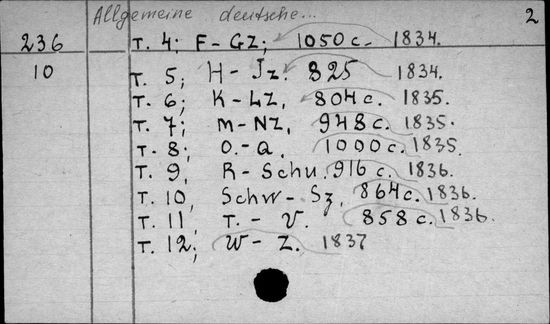 Allgemeine deutsche... 2
236 T. 4; F-GZ; 1050 c. 1834.
10 T. 5; H-Jz. 825 1834.
T. 6; K-LZ, 804 c. 1835.
T. 7; M-NZ, 948 c. 1835.
T. 8; O.-Q, 1000 c. 1835.
T. 9, R-Schu. 916 c. 1836.
T. 10, Schw-Sz, 864 c. 1836.
T. 11, T.-V. 858 c. 1836.
T. 12; W-Z. 1837